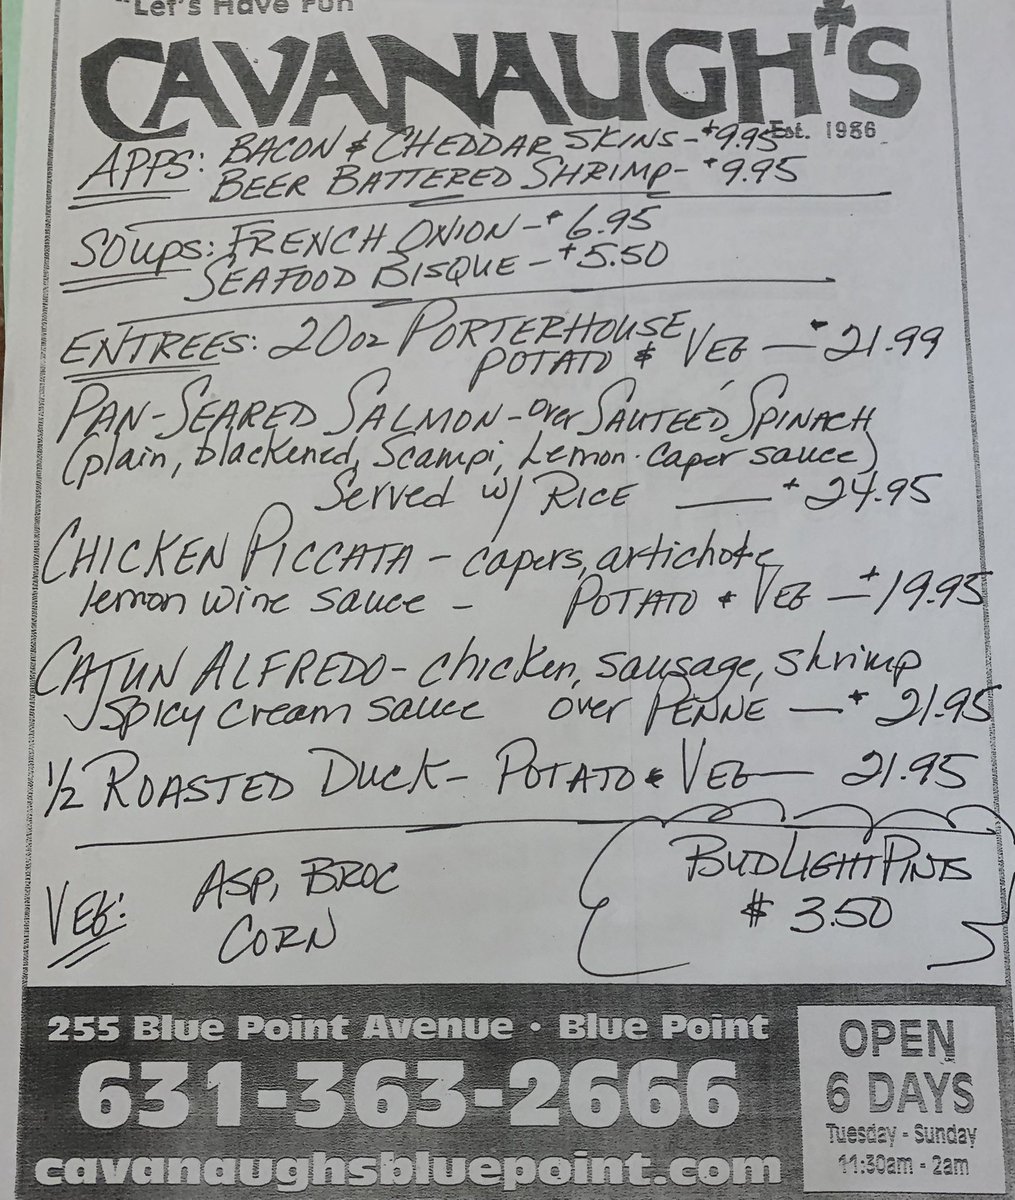 "Let's Have Fun
CAVANAUGH'S
Est. 1986
APPS: BACON & CHEDDAR SKINS - $9.95
BEER BATTERED SHRIMP - $9.95
SOUPS: FRENCH ONION - $6.95
SEAFOOD BISQUE - $5.50
ENTREES: 20oz PORTERHOUSE
POTATO & VEG — $21.99
PAN-SEARED SALMON - over SAUTEÉD SPINACH
(plain, blackened, Scampi, Lemon-Caper sauce)
Served w/ RICE — $24.95
CHICKEN PICCATA - capers, artichoke
lemon wine sauce - POTATO & VEG — $19.95
CAJUN ALFREDO - chicken, sausage, shrimp
spicy cream sauce over PENNE — $21.95
1/2 ROASTED DUCK - POTATO & VEG — 21.95
VEG: ASP, BROC
CORN
BUD LIGHT PINTS
$3.50
255 Blue Point Avenue • Blue Point
631-363-2666
cavanaughsbluepoint.com
OPEN
6 DAYS
Tuesday - Sunday
11:30am - 2am